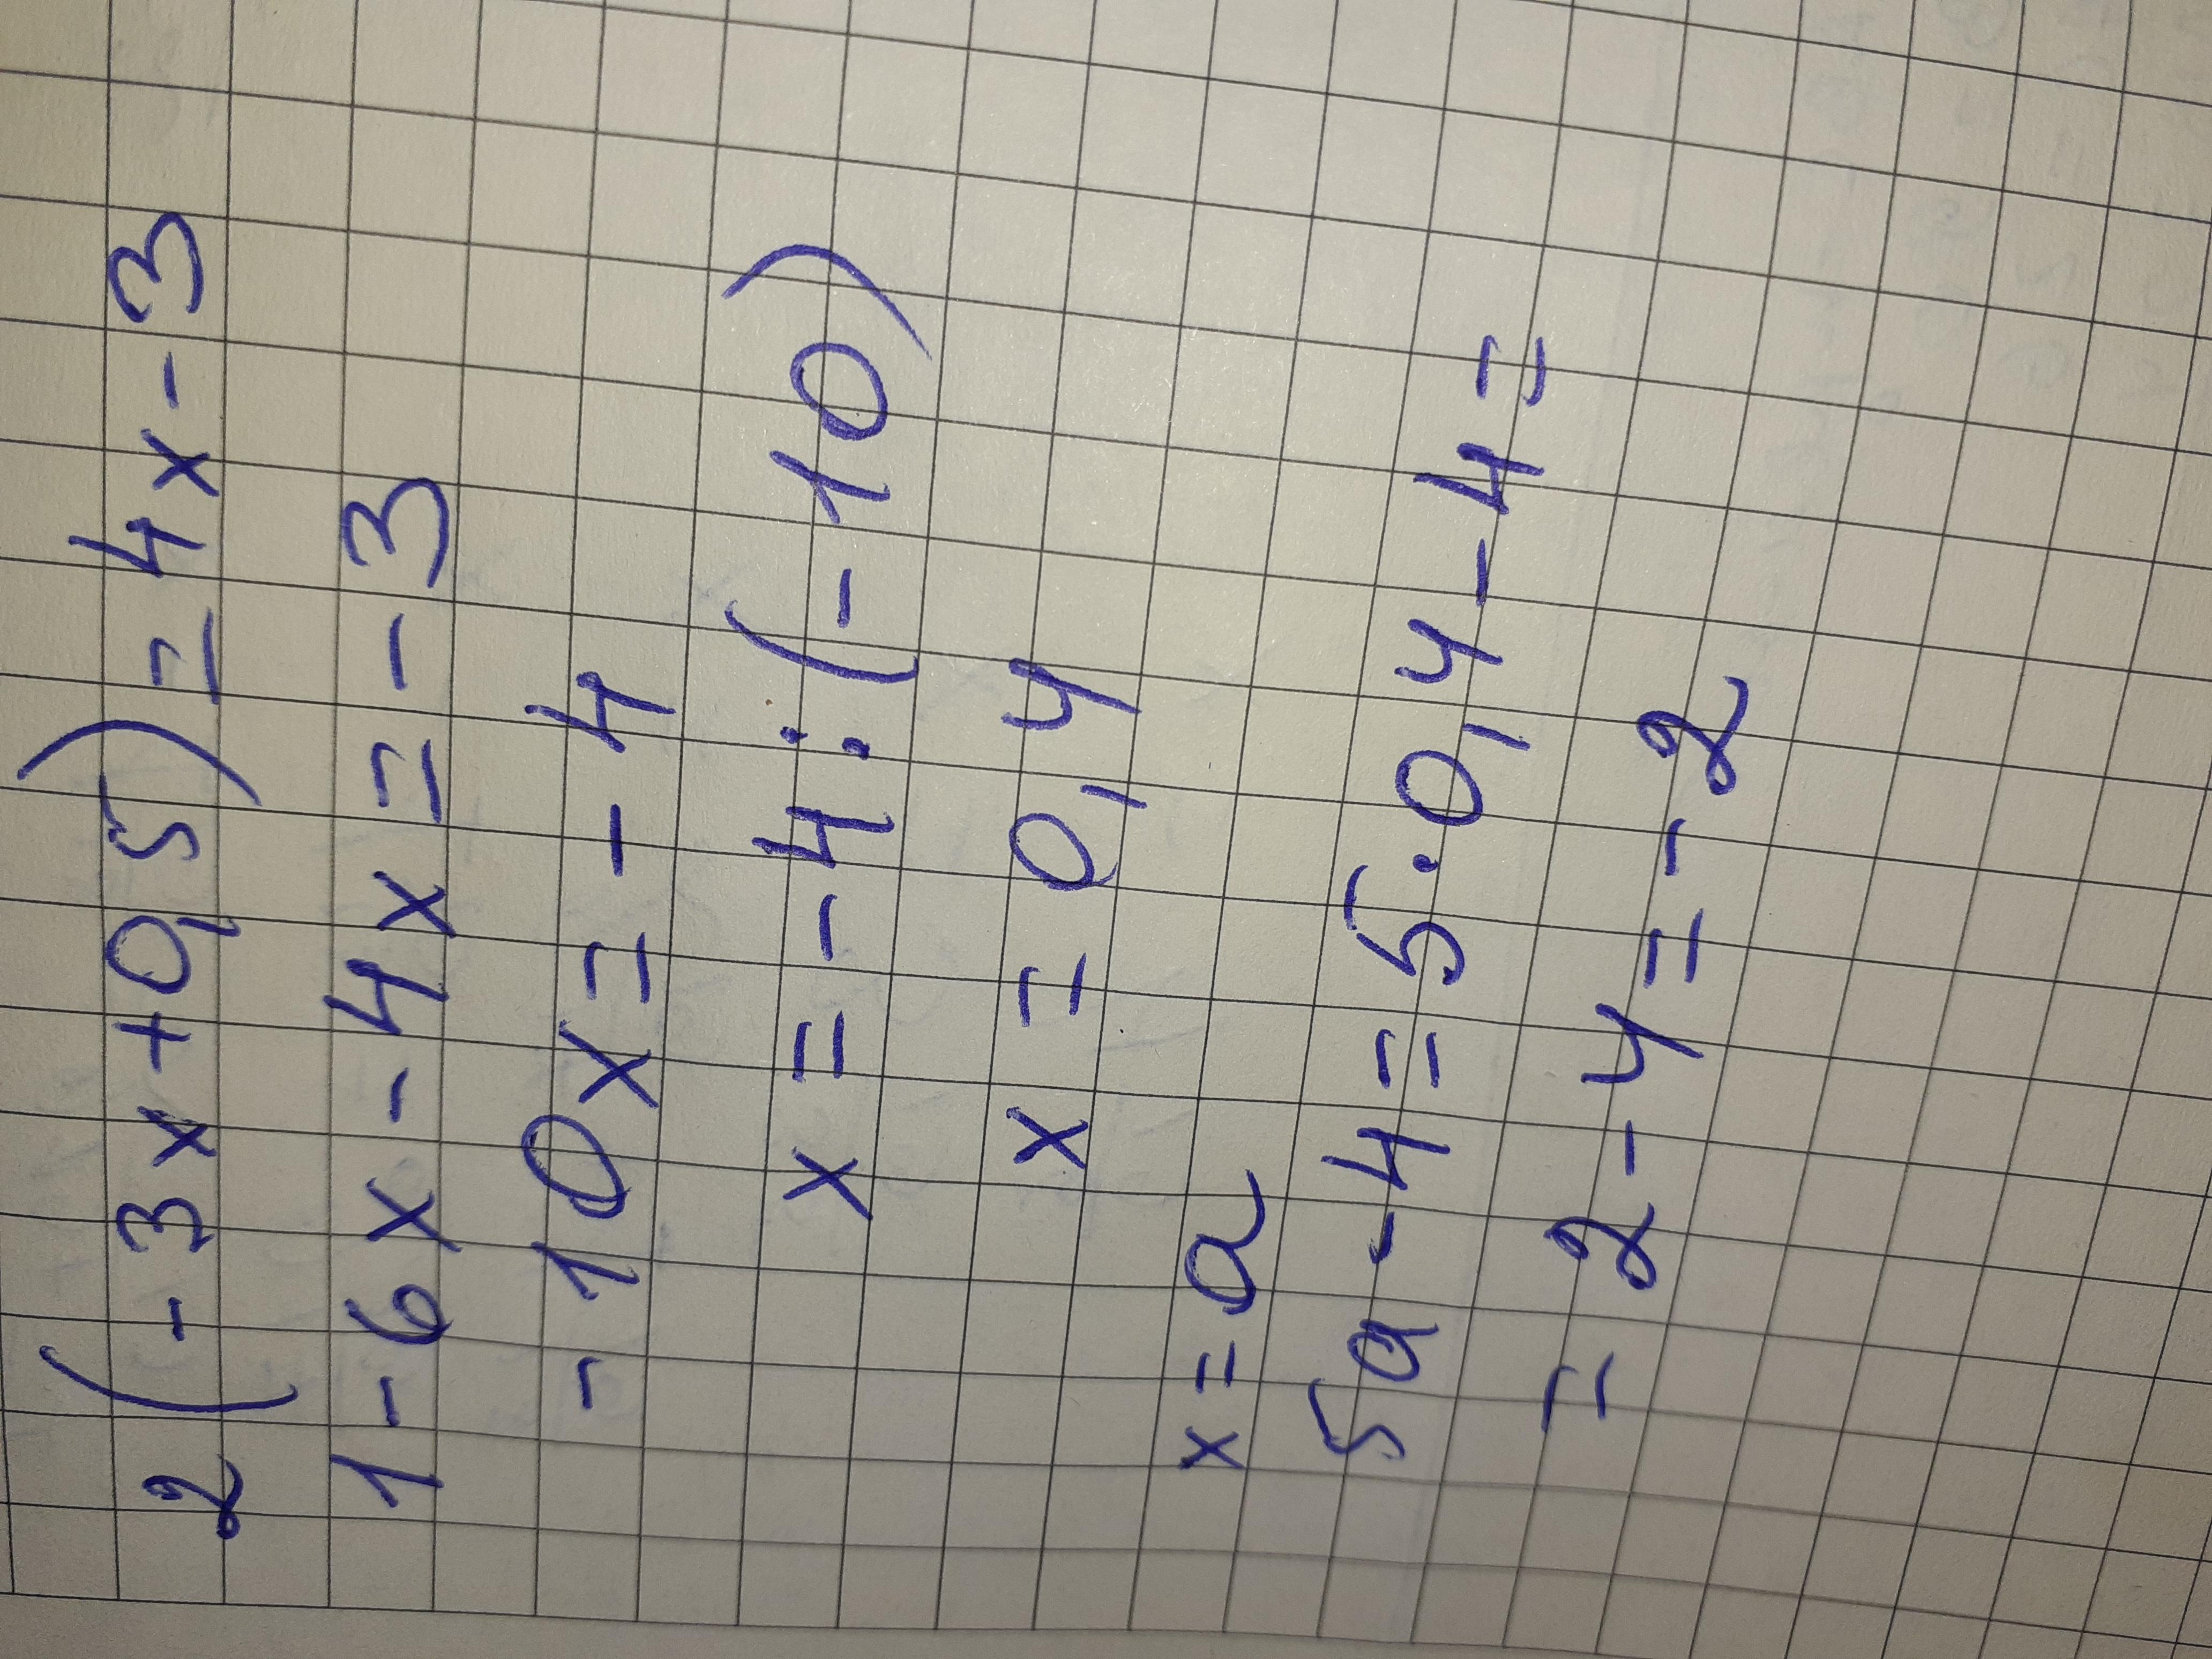 2(-3x+0,5)=4x-3
1-6x-4x=-3
-10x=-4
x=-4:(-10)
x=0,4
x=a
5a-4=5·0,4-4=
=2-4=-2